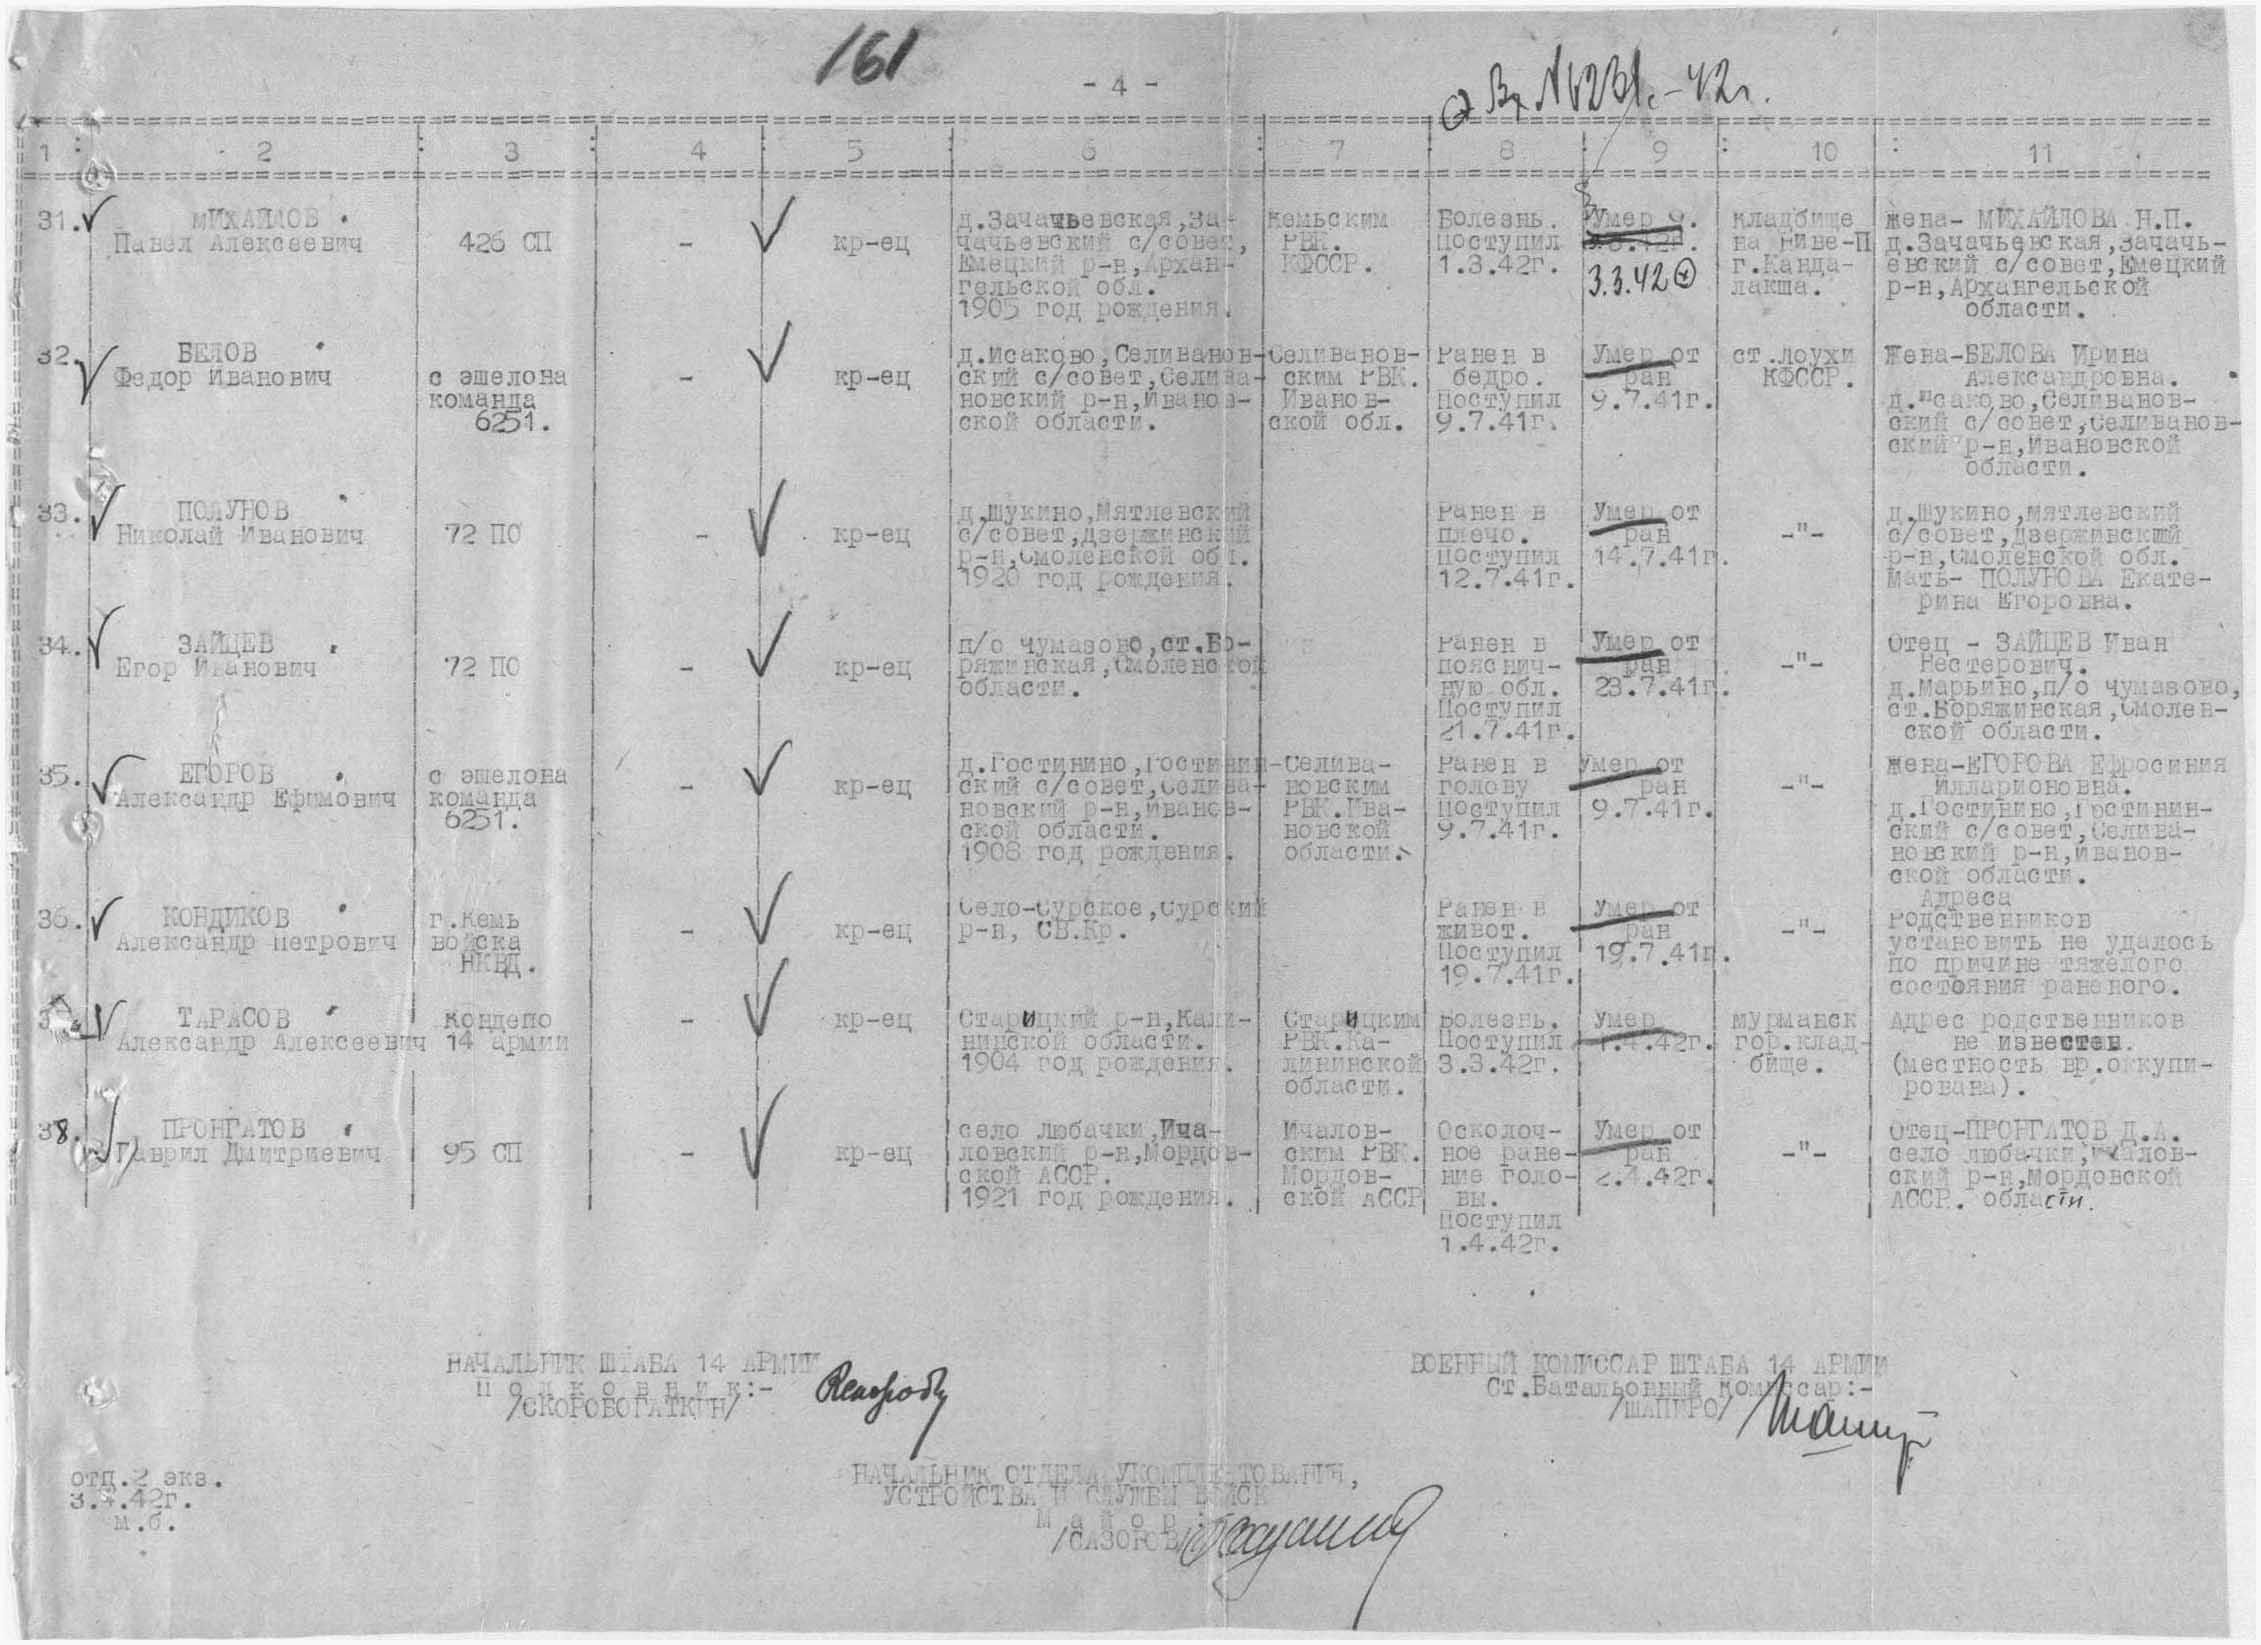 161
- 4 -
Вх №1231с-42г.
1 : 2 : 3 : 4 : 5 : 6 : 7 : 8 : 9 : 10 : 11
31. МИХАЙЛОВ
Павел Алексеевич
426 СП
-
кр-ец
д.Зачачьевская,За-
чачьевский с/совет,
Емецкий р-н,Архан-
гельской обл.
1905 год рождения.
Кемьским
РВК.
КФССР.
Болезнь.
Поступил
1.3.42г.
Умер
3.3.42
кладбище
на Ниве-П
г.Канда-
лакша.
Жена- МИХАЙЛОВА Н.П.
д.Зачачьевская,Зачачь-
евский с/совет,Емецкий
р-н,Архангельской
области.
32. БЕЛОВ
Федор Иванович
с эшелона
команда
6251.
-
кр-ец
д.Исаково,Селиванов-
ский с/совет,Селива-
новский р-н,Иванов-
ской области.
Селиванов-
ским РВК.
Иванов-
ской обл.
Ранен в
бедро.
Поступил
9.7.41г.
Умер от
ран
9.7.41г.
ст.Лоухи
КФССР.
Жена-БЕЛОВА Ирина
Александровна.
д.Исаково,Селиванов-
ский с/совет,Селиванов-
ский р-н,Ивановской
области.
33. ПОЛУНОВ
Николай Иванович
72 ПО
-
кр-ец
д.Шукино,Мятлевский
с/совет,Дзержинский
р-н,Смоленской обл.
1920 год рождения.
Ранен в
плечо.
Поступил
12.7.41г.
Умер от
ран
14.7.41г.
-"-
д.Шукино,Мятлевский
с/совет,Дзержинский
р-н,Смоленской обл.
Мать- ПОЛУНОВА Екате-
рина Егоровна.
34. ЗАЙЦЕВ
Егор Иванович
72 ПО
-
кр-ец
п/о Чумазово,ст.Бо-
ряжинская,Смоленской
области.
Ранен в
пояснич-
ную обл.
Поступил
21.7.41г.
Умер от
ран
23.7.41г.
-"-
Отец - ЗАЙЦЕВ Иван
Нестерович.
д.Марьино,п/о Чумазово,
ст.Боряжинская,Смолен-
ской области.
35. ЕГОРОВ
Александр Ефимович
с эшелона
команда
6251.
-
кр-ец
д.Гостинино,Гостинин-
ский с/совет,Селива-
новский р-н,Иванов-
ской области.
1908 год рождения.
Селива-
новским
РВК.Ива-
новской
области.
Ранен в
голову
Поступил
9.7.41г.
Умер от
ран
9.7.41г.
-"-
Жена-ЕГОРОВА Ефросиния
Илларионовна.
д.Гостинино,Гостинин-
ский с/совет,Селива-
новский р-н,Иванов-
ской области.
36. КОНДИКОВ
Александр Петрович
г.Кемь
войска
НКВД.
-
кр-ец
Село-Сурское,Сурский
р-н, СВ.Кр.
Ранен в
живот.
Поступил
19.7.41г.
Умер от
ран
19.7.41г.
-"-
Адреса
родственников
установить не удалось
по причине тяжелого
состояния раненого.
ТАРАСОВ
Александр Алексеевич
Кондепо
14 армии
-
кр-ец
Старицкий р-н,Кали-
нинской области.
1904 год рождения.
Старицким
РВК.Ка-
лининской
области.
Болезнь.
Поступил
3.3.42г.
Умер
1.4.42г.
Мурманск
гор.клад-
бище.
Адрес родственников
не известен.
(местность вр.оккупи-
рована).
38. ПРОНГАТОВ
Гаврил Дмитриевич
95 СП
-
кр-ец
село Любачки,Ича-
ловский р-н,Мордов-
ской АССР.
1921 год рождения.
Ичалов-
ским РВК.
Мордов-
ской АССР
Осколоч-
ное ране-
ние голо-
вы.
Поступил
1.4.42г.
Умер от
ран
2.4.42г.
-"-
Отец-ПРОНГАТОВ Д.А.
село Любачки,Ичалов-
ский р-н,Мордовской
АССР. области.
НАЧАЛЬНИК ШТАБА 14 АРМИИ
П о л к о в н и к:-
/СКОРОБОГАТКИН/
ВОЕННЫЙ КОМИССАР ШТАБА 14 АРМИИ
Ст.Батальонный Комиссар:-
/ШАПИРО/
НАЧАЛЬНИК ОТДЕЛА УКОМПЛЕКТОВАНИЯ,
УСТРОЙСТВА И СЛУЖБЫ ВОЙСК
М а й о р :
/САЗОНОВ/
отп.2 экз.
3.4.42г.
м.б.